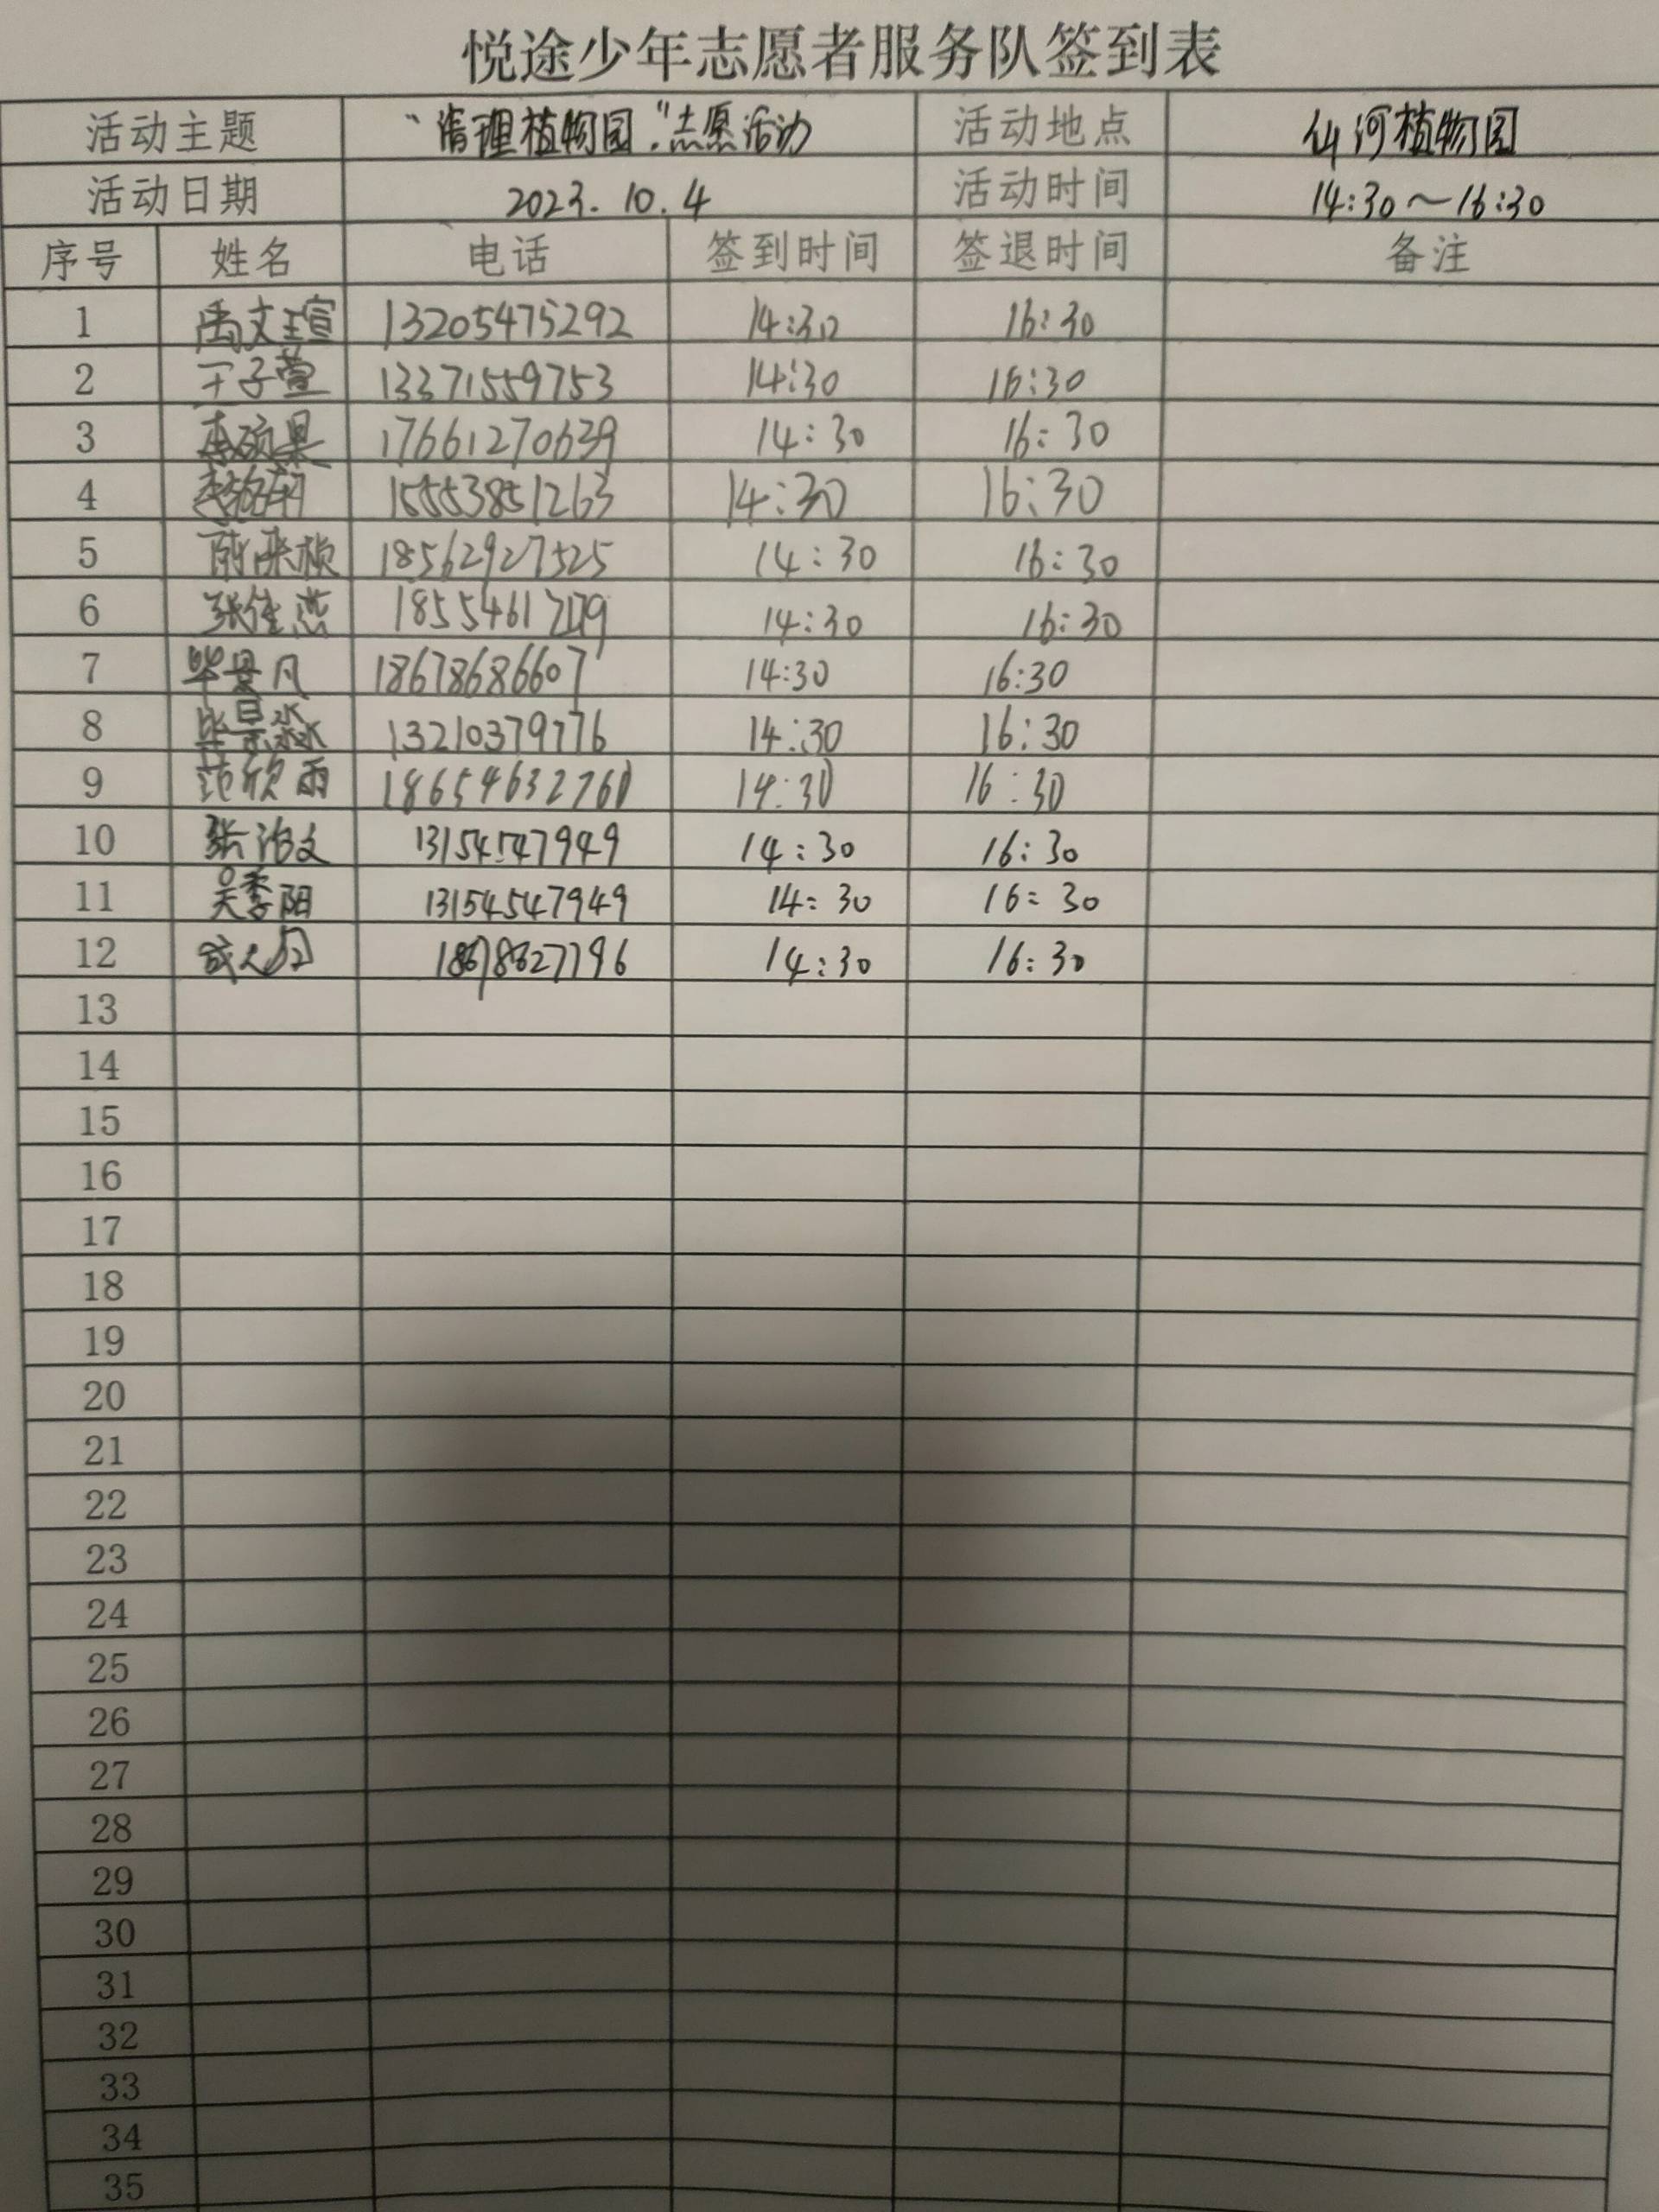 悦途少年志愿者服务队签到表
活动主题 “清理植物园”志愿活动 活动地点 仙河植物园
活动日期 2023.10.4 活动时间 14:30～16:30
序号 姓名 电话 签到时间 签退时间 备注
1 禹文瑄 13205475292 14:30 16:30
2 于子萱 13371559753 14:30 16:30
3 李硕果 17661270639 14:30 16:30
4 15553851263 14:30 16:30
5 18562927525 14:30 16:30
6 张佳蕊 14:30 16:30
7 毕景凡 18678686607 14:30 16:30
8 毕景淼 13210379776 14:30 16:30
9 范欣雨 18654632760 14:30 16:30
10 张洺文 13154547949 14:30 16:30
11 吴季阳 13154547949 14:30 16:30
12 14:30 16:30
13
14
15
16
17
18
19
20
21
22
23
24
25
26
27
28
29
30
31
32
33
34
35